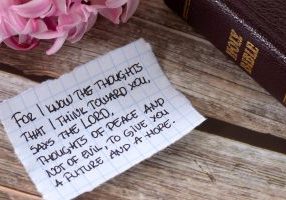 FOR I KNOW THE THOUGHTS
THAT I THINK TOWARD YOU,
SAYS THE LORD,
THOUGHTS OF PEACE AND
NOT OF EVIL, TO GIVE YOU
A FUTURE AND A HOPE.
HOLY BIBLE